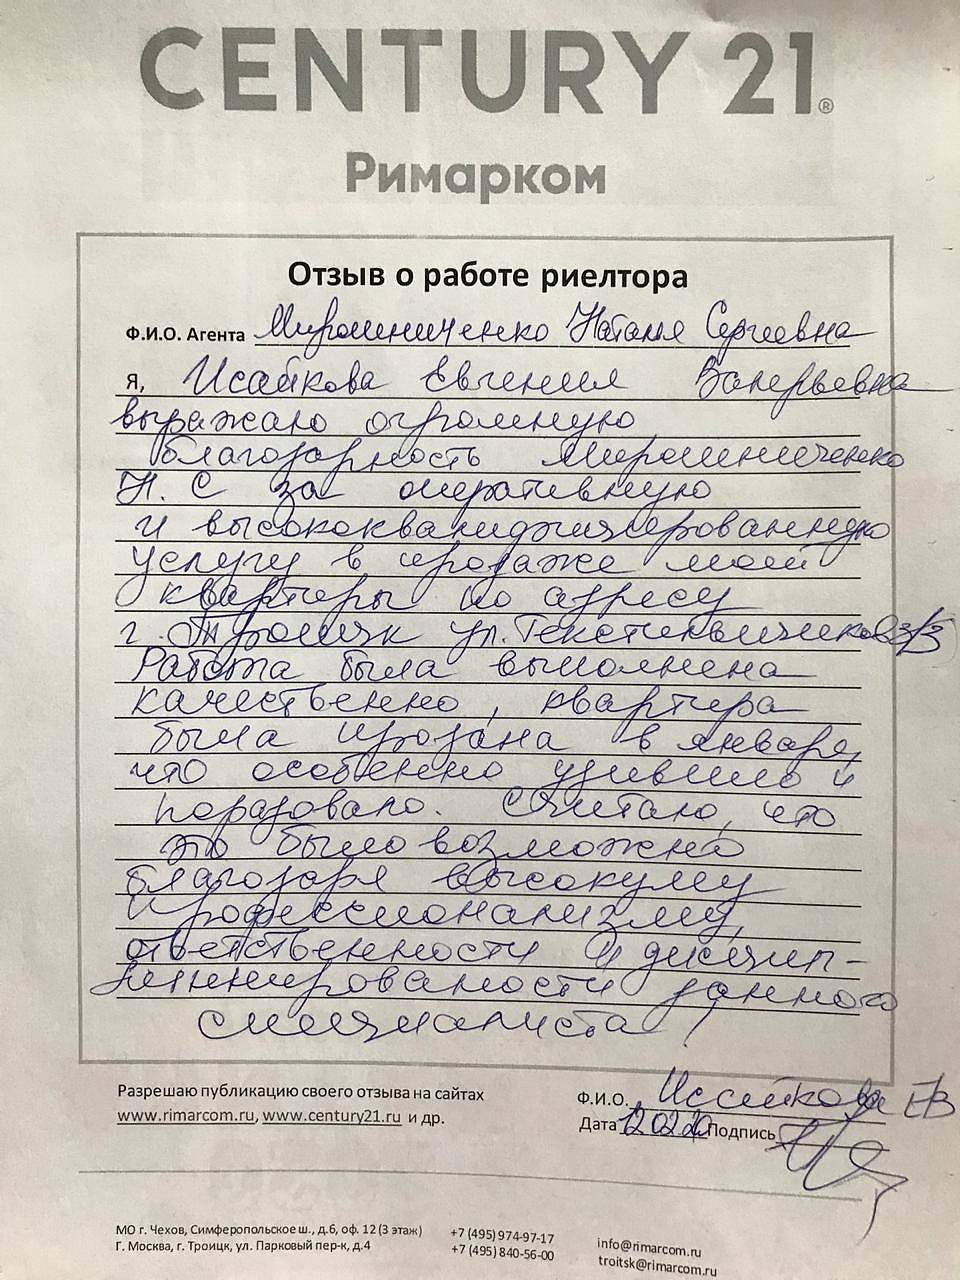 CENTURY 21®
Римарком
Отзыв о работе риелтора
Ф.И.О. Агента Мирошниченко Наталья Сергеевна
Я, Исайкова Евгения Валерьевна
выражаю огромную
благодарность Мирошниченко
Н. С за оперативную
и высококвалифицированную
услугу в продаже моей
квартиры по адресу
г. Троицк ул. Текстильщиков 3/3
Работа была выполнена
качественно, квартира
была продана в январе,
что особенно удивило и
порадовало. Считаю, что
это было возможно
благодаря высокуму
профессионализму,
ответственности и дисцип-
линированности данного
специалиста!
Разрешаю публикацию своего отзыва на сайтах
www.rimarcom.ru, www.century21.ru и др.
Ф.И.О. Исайкова ЕВ
Дата 12.02.20 Подпись
МО г. Чехов, Симферопольское ш., д.6, оф. 12 (3 этаж)
Г. Москва, г. Троицк, ул. Парковый пер-к, д.4
+7 (495) 974-97-17
+7 (495) 840-56-00
info@rimarcom.ru
troitsk@rimarcom.ru